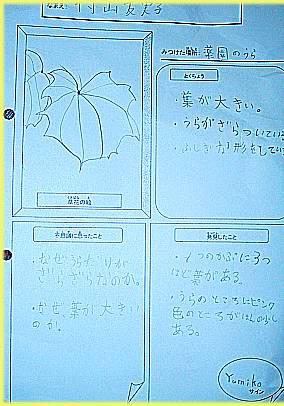 なまえ
みつけた場所 菜園のうら
とくちょう
・葉が大きい。
・うらがざらついている
・ふしぎな形をしてい
草花の絵
不思議に思ったこと
・なぜうらだけが
ざらざらなのか。
・なぜ、葉が大きい
のか。
発見したこと
・1つのかぶに3つ
ほど葉がある。
・うらのところにピンク
色のところがほんの少し
ある。
Yumiko
サイン